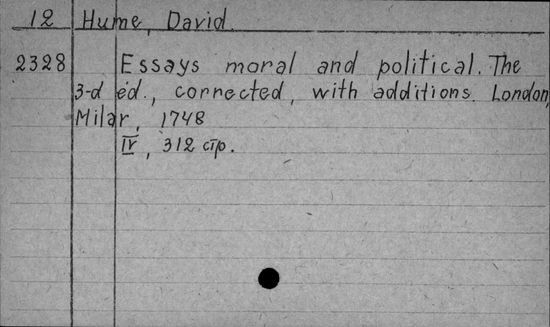 12 Hume, David.
2328 Essays moral and political. The
3-d ed., corrected, with additions. London,
Milar, 1748
IV, 312 стр.